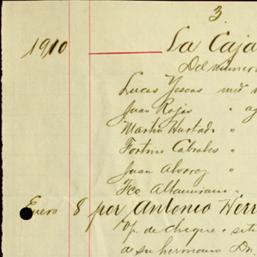 3.
1910 La Caja
Del número
Lucas Yescas
Juan Rojas "
Martin Hurtado "
Fortino Cabrales "
Juan Alvarez "
Fco Altamirano "
Enero 8 por Antonio Herr
de cheque
de su hermano Dn.